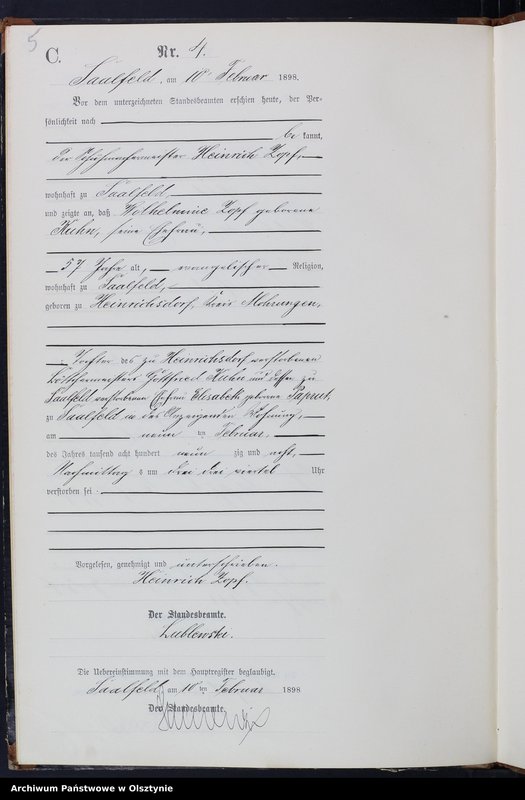 5
C.
Nr. 4.
Saalfeld, am 10 Februar 1898.
Vor dem unterzeichneten Standesbeamten erschien heute, der Per-
sönlichkeit nach
be kannt,
der Schuhmachermeister Heinrich Zopf,
wohnhaft zu Saalfeld
und zeigte an, daß Wilhelmine Zopf geborene
Kuhn, seine Ehefrau,
57 Jahre alt, evangelischer Religion,
wohnhaft zu Saalfeld,
geboren zu Heinrichsdorf, Kreis Mohrungen,
Tochter des zu Heinrichsdorf verstorbenen
Gottfried Kuhn und dessen zu
Saalfeld verstorbenen Ehefrau Elisabeth geborene Paprut,
zu Saalfeld in des Anzeigenden Wohnung,
am neun ten Februar,
des Jahres tausend acht hundert neun zig und acht,
Nachmittag s um drei drei viertel Uhr
verstorben sei.
Vorgelesen, genehmigt und unterschrieben.
Heinrich Zopf.
Der Standesbeamte.
Lublewski.
Die Uebereinstimmung mit dem Hauptregister beglaubigt.
Saalfeld, am 10 ten Februar 1898
Der Standesbeamte.
Archiwum Państwowe w Olsztynie